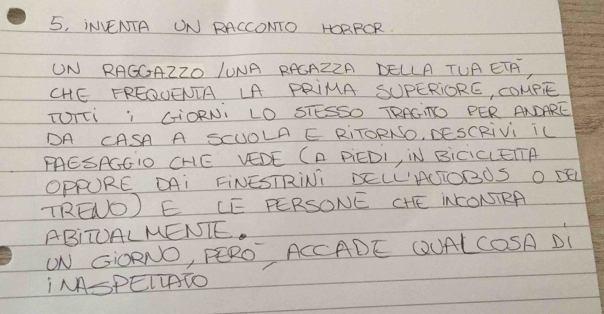 5. INVENTA UN RACCONTO HORROR.
UN RAGGAZZO/UNA RAGAZZA DELLA TUA ETÀ,
CHE FREQUENTA LA PRIMA SUPERIORE, COMPIE
TUTTI i GIORNI LO STESSO TRAGITTO PER ANDARE
DA CASA A SCUOLA E RITORNO. DESCRIVI IL
PAESAGGIO CHE VEDE (A PIEDI, IN BICICLETTA
OPPURE DAI FINESTRINI DELL'AUTOBUS O DEL
TRENO) E LE PERSONE CHE INCONTRA
ABITUALMENTE.
UN GIORNO, PERÒ, ACCADE QUALCOSA DI
INASPETTATO